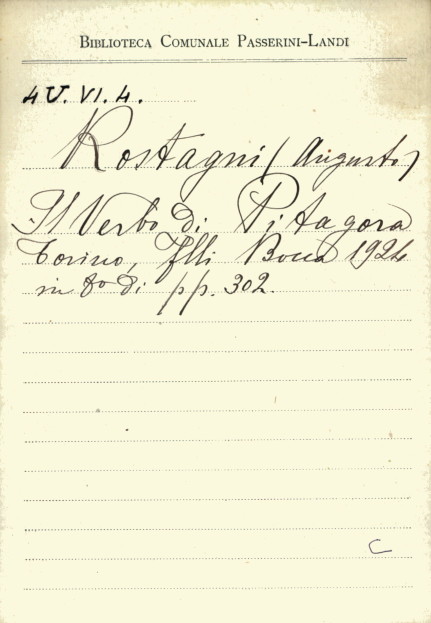 BIBLIOTECA COMUNALE PASSERINI-LANDI
4U.VI.4.
Rostagni (Augusto)
Il Verbo di Pitagora
Torino, Flli Bocca 1924
in 8o di pp. 302.
C